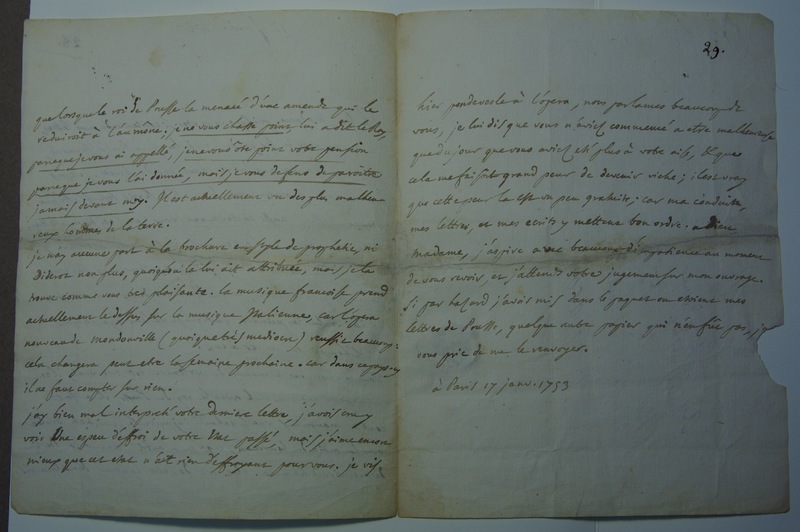 que lorsque le roi de Prusse la menacé d'une amende qui le
reduiroit à l'aumône. je ne vous chasse point lui a dit le Roy,
parceque je vous ai appellé, je ne vous ôte point votre pension
parceque je vous l'ai donnée, mais je vous defens de paroitre
jamais devant moy. Il est actuellement un des plus malheu-
reux hommes de la terre.
je n'ay aucune part à la brochure en style de prophetie, ni
Diderot non plus, quoiqu'on le lui ait attribuée, mais je la
trouve comme vous tres plaisante. la musique francoise prend
actuellement le dessus sur la musique Italienne, car l'opera
nouveau de Mondonville (quoique tres mediocre) reussit beaucoup;
cela changera peut etre la semaine prochaine. car dans ce pays-cy
il ne faut compter sur rien.
j'ay bien mal interpreté votre derniere lettre, j'avois cru y
voir une espece d'effroi de votre etat passé, mais j'aime encore
mieux que cet etat n'ait rien d'effroyant pour vous. je vis
29.
hier pondeveile à l'opera, nous parlames beaucoup de
vous, je lui dis que vous n'aviez commencé a etre malheureuse
que du jour que vous aviez eté plus à votre aise, & que
cela me faisoit grand peur de devenir riche; il est vray
que cette peur la est un peu gratuite; car ma conduite,
mes lettres, et mes ecrits y mettent bon ordre. adieu
madame, j'aspire avec beaucoup d'impatience au moment
de vous revoir, et j'attends votre jugement sur mon ouvrage.
Si par hazard j'avois mis dans le paquet ou etoient mes
lettres de Prusse, quelque autre papier qui n'en fût pas, je
vous prie de me le renvoyer.
à Paris 17 janv. 1753